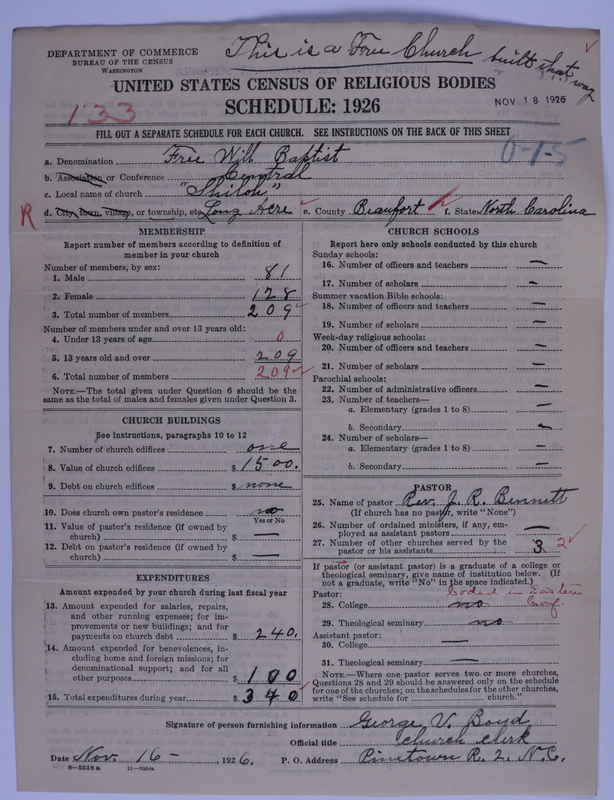 This is a Free Church built that way
DEPARTMENT OF COMMERCE
BUREAU OF THE CENSUS
WASHINGTON
UNITED STATES CENSUS OF RELIGIOUS BODIES
SCHEDULE: 1926
NOV 18 1926
133
FILL OUT A SEPARATE SCHEDULE FOR EACH CHURCH. SEE INSTRUCTIONS ON THE BACK OF THIS SHEET
0-1-5
a. Denomination Free Will Baptist
b. Association or Conference Central
c. Local name of church "Shiloh"
R d. City, town, village, or township, etc. Long Acre e. County Beaufort f. State North Carolina
MEMBERSHIP
Report number of members according to definition of
member in your church
Number of members, by sex:
1. Male 81
2. Female 128
3. Total number of members 209
Number of members under and over 13 years old:
4. Under 13 years of age 0
5. 13 years old and over 209
6. Total number of members 209
NOTE.—The total given under Question 6 should be
same as the total of males and females given under Question 3.
CHURCH BUILDINGS
See instructions, paragraphs 10 to 12
7. Number of church edifices one
8. Value of church edifices $ 1500.
9. Debt on church edifices $ none
10. Does church own pastor's residence? no
Yes or No
11. Value of pastor's residence (if owned by
church) $ —
12. Debt on pastor's residence (if owned by
church) $ —
EXPENDITURES
Amount expended by your church during last fiscal year
13. Amount expended for salaries, repairs,
and other running expenses; for im-
provements or new buildings; and for
payments on church debt $ 240.
14. Amount expended for benevolences, in-
cluding home and foreign missions; for
denominational support; and for all
other purposes $ 100
15. Total expenditures during year $ 340
CHURCH SCHOOLS
Report here only schools conducted by this church
Sunday schools:
16. Number of officers and teachers —
17. Number of scholars —
Summer vacation Bible schools:
18. Number of officers and teachers —
19. Number of scholars —
Week-day religious schools:
20. Number of officers and teachers —
21. Number of scholars —
Parochial schools:
22. Number of administrative officers —
23. Number of teachers—
a. Elementary (grades 1 to 8) —
b. Secondary —
24. Number of scholars—
a. Elementary (grades 1 to 8) —
b. Secondary —
PASTOR
25. Name of pastor Rev. J. R. Bennett
(If church has no pastor, write "None")
26. Number of ordained ministers, if any, em-
ployed as assistant pastors —
27. Number of other churches served by the
pastor or his assistants 3 2
If pastor (or assistant pastor) is a graduate of a college or
theological seminary, give name of institution below. (If
not a graduate, write "No" in the space indicated.)
Pastor: Coded in Eastern
28. College no Conf.
29. Theological seminary no
Assistant pastor:
30. College —
31. Theological seminary —
NOTE.—Where one pastor serves two or more churches,
Questions 28 and 29 should be answered only on the schedule
for one of the churches; on the schedules for the other churches,
write "See schedule for church."
Signature of person furnishing information George V. Boyd
Official title church clerk
Date Nov. 16 — , 1926. P. O. Address Pinetown R. 2. N.C.
8—5518a